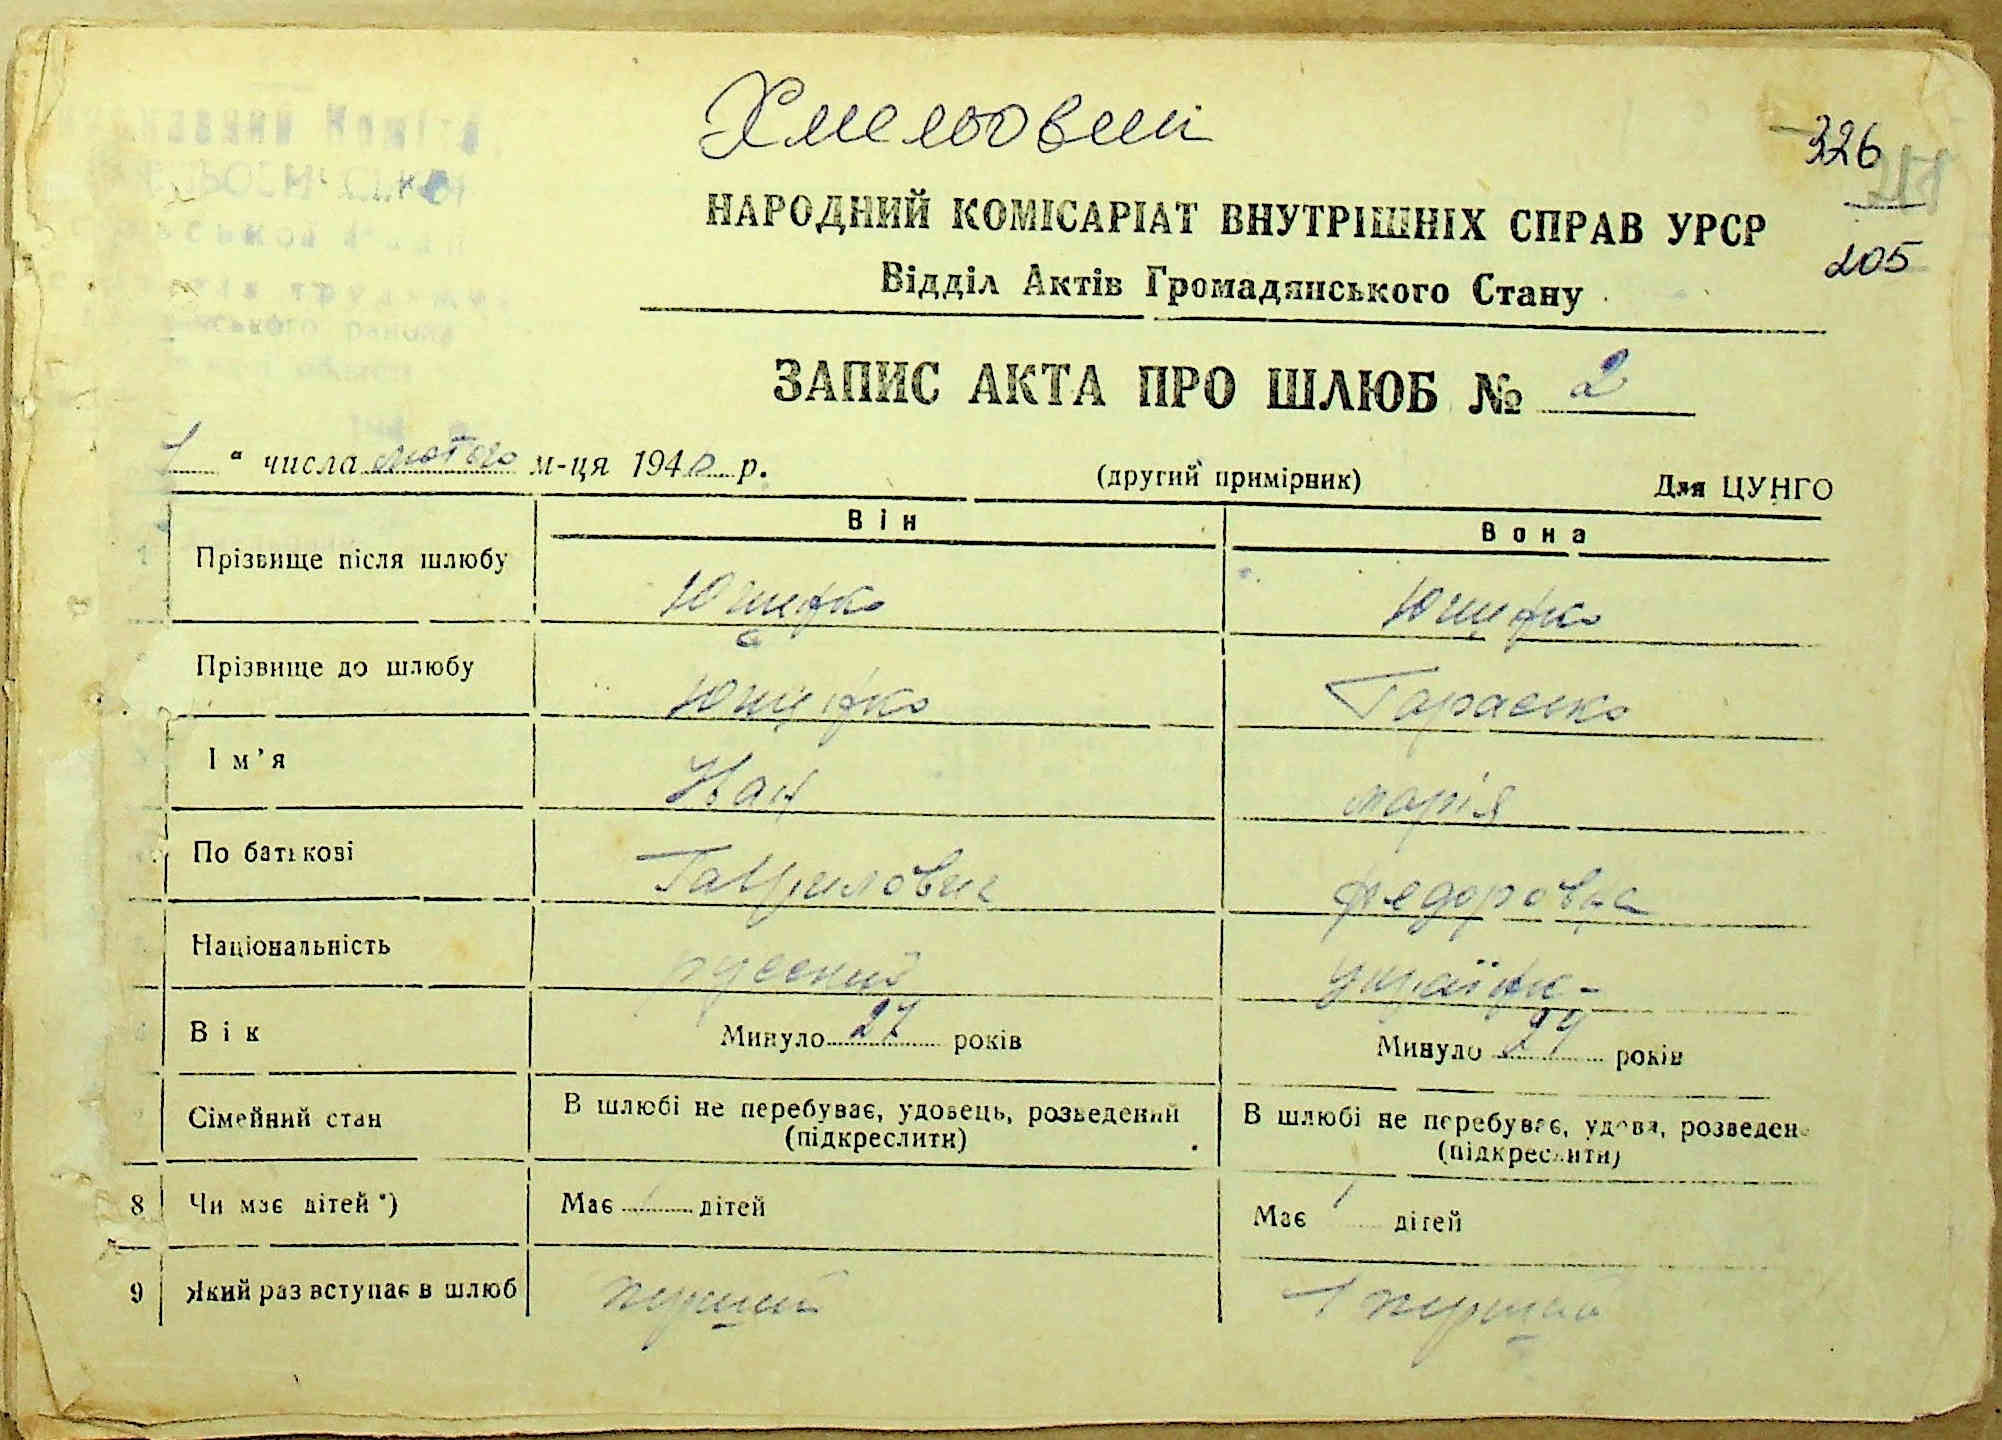 Хмельовий
326
205
НАРОДНИЙ КОМІСАРІАТ ВНУТРІШНІХ СПРАВ УРСР
Відділ Актів Громадянського Стану
ЗАПИС АКТА ПРО ШЛЮБ № 2
1 " числа лютого м-ця 1940 р.
(другий примірник)
Для ЦУНГО
Він Вона
1 Прізвище після шлюбу Ющенко Ющенко
Прізвище до шлюбу Ющенко Тарасенко
Ім'я Іван марія
По батькові Гаврилович федоровна
Національність русский українка
Вік Минуло 27 років Минуло років
Сімейний стан В шлюбі не перебуває, удовець, розведений (підкреслити) В шлюбі не перебуває, удова, розведена (підкреслити)
8 Чи має дітей *) Має дітей Має дітей
9 Який раз вступає в шлюб перший 1 перший